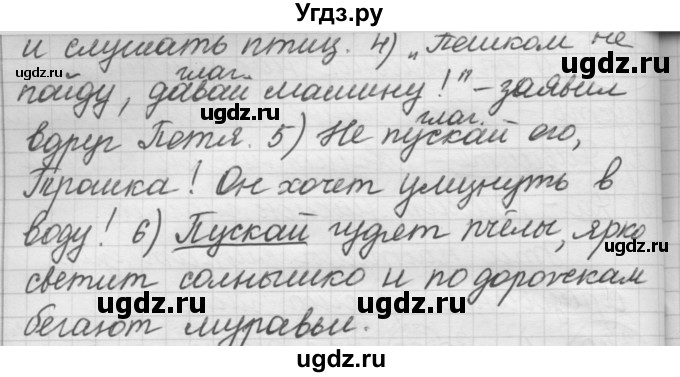 Угдз.ру
и слушать птиц. 4) „Пешком не
ugdz.ru глаг. ugdz.ru
пойду, давай машину!" – заявил
глаг.
вдруг Петя. 5) Не пускай его,
ugdz.ru ugdz.ru
Трошка! Он хочет улизнуть в
ugdz.ru
воду! 6) Пускай гудят пчёлы, ярко
ugdz.ru
светит солнышко и по дорожкам
ugdz.ru ugdz.ru
бегают муравьи.
ugdz.ru